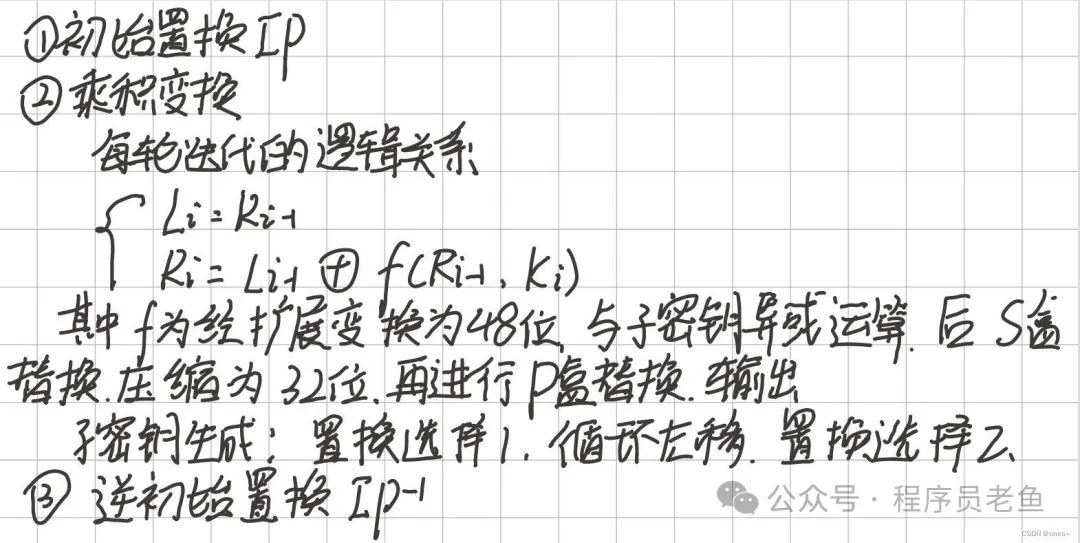 ①初始置换IP
②乘积变换
每轮迭代的逻辑关系
Li=Ri-1
Ri=Li-1⊕f(Ri-1,Ki)
其中f为经扩展变换为48位,与子密钥异或运算.后S盒
替换.压缩为32位.再进行P盒替换.输出
子密钥生成:置换选择1.循环左移.置换选择2、
③逆初始置换IP-1
公众号·程序员老鱼
CSDN @ones~